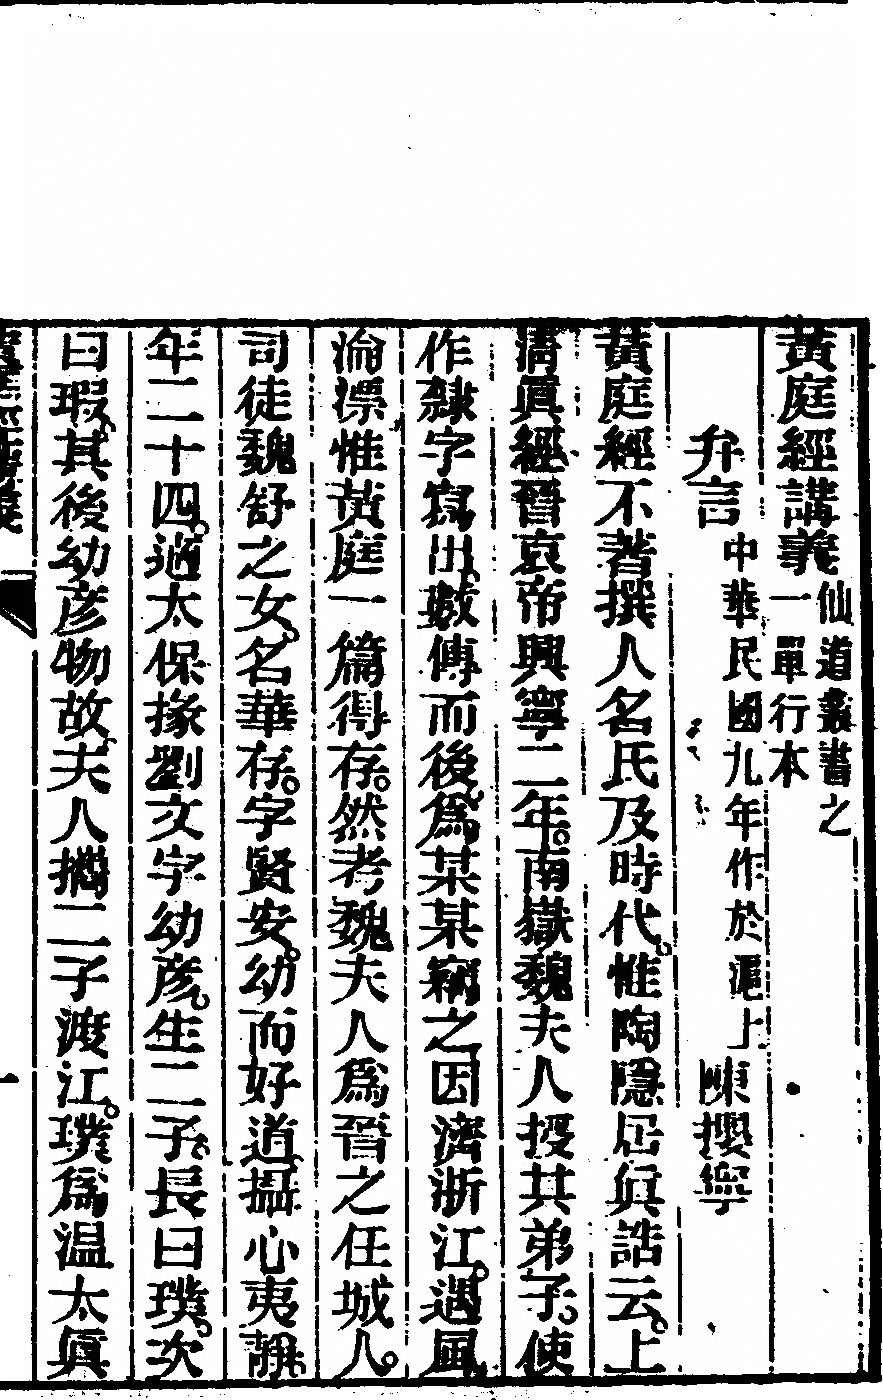 黃庭經講義仙道叢書之一單行本
弁言中華民國九年作於滬上陳攖寧
黃庭經不著撰人名氏及時代。惟陶隱居眞誥云。上
淸眞經。晉哀帝興寧二年。南嶽魏夫人授其弟子。使
作隸字寫出。數傳而後。爲某某竊之。因濟浙江。遇風
淪漂。惟黃庭一篇得存。然考魏夫人爲晉之任城人。
司徒魏舒之女。名華存。字賢安。幼而好道。攝心夷靜。
年二十四。適太保掾劉文字幼彥。生二子。長曰璞。次
曰瑕。其後幼彥物故。夫人攜二子渡江。璞爲温太眞